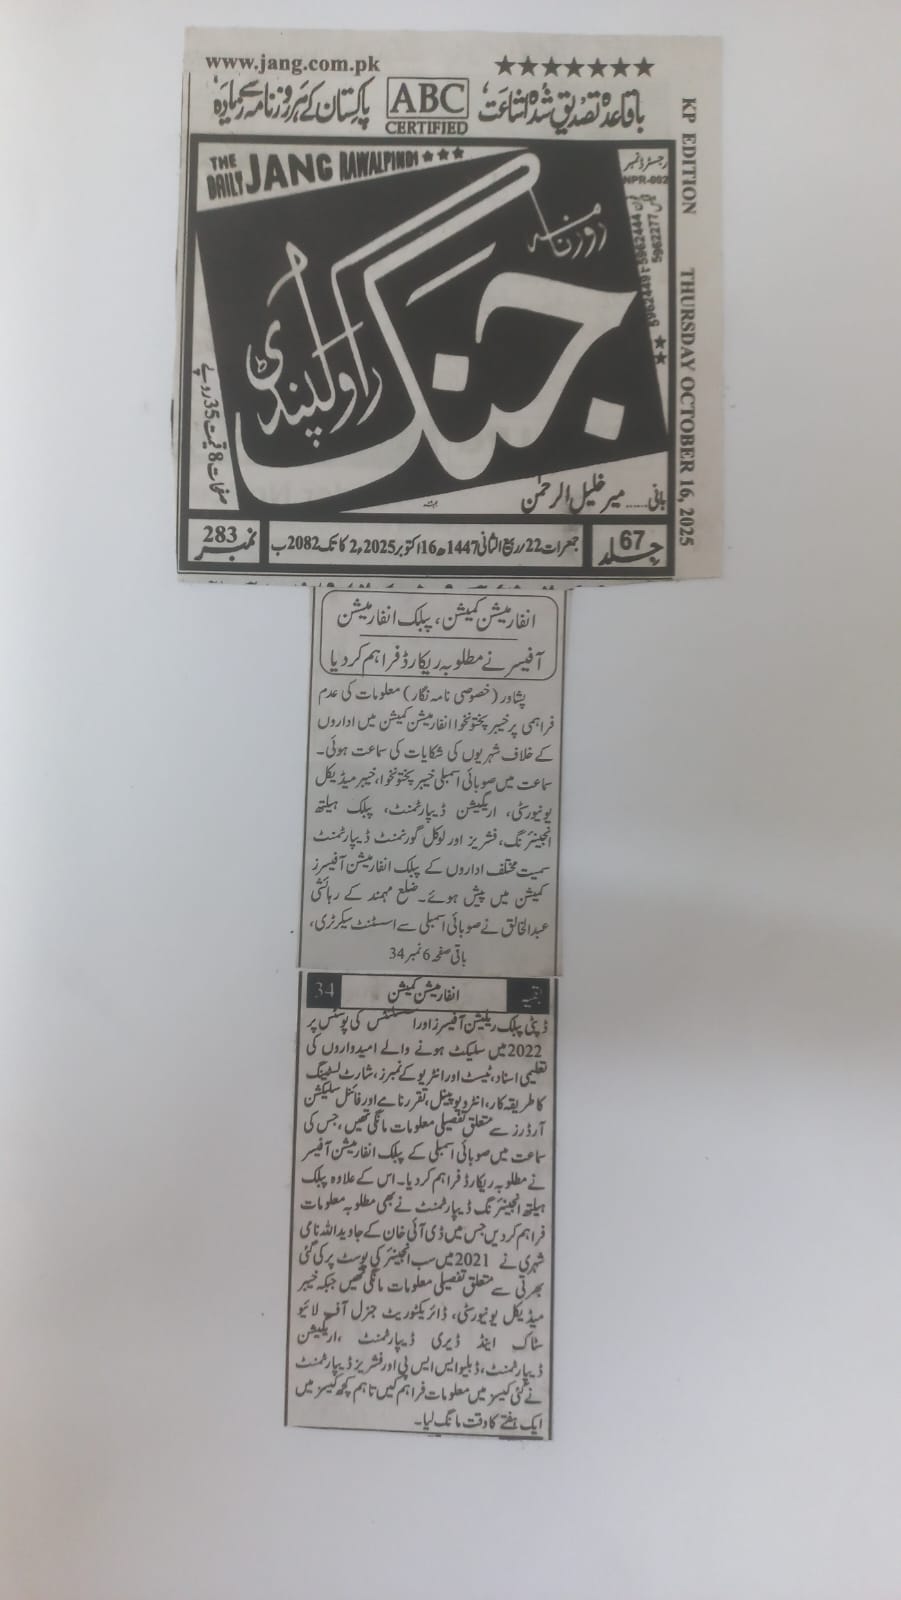 www.jang.com.pk
★★★★★★★
پاکستان کے ہر روزنامہ سے زیادہ، باقاعدہ تصدیق شدہ اشاعت
ABC
CERTIFIED
THE DAILY JANG RAWALPINDI ★★★
رجسٹرڈ نمبر
NPR-002
KP EDITION THURSDAY OCTOBER 16, 2025
روزنامہ
جنگ
راولپنڈی
صفحات 8 قیمت 35 روپے
بانی..... میر خلیل الرحمٰن
جلد 67
جمعرات 22 ربیع الثانی 1447ھ 16 اکتوبر 2025ء 2 کاتک 2082ب
نمبر 283
انفارمیشن کمیشن، پبلک انفارمیشن
آفیسر نے مطلوبہ ریکارڈ فراہم کر دیا
پشاور (خصوصی نامہ نگار) معلومات کی عدم
فراہمی پر خیبر پختونخوا انفارمیشن کمیشن میں اداروں
کے خلاف شہریوں کی شکایات کی سماعت ہوئی۔
سماعت میں صوبائی اسمبلی خیبر پختونخوا، خیبر میڈیکل
یونیورسٹی، اریگیشن ڈیپارٹمنٹ، پبلک ہیلتھ
انجینئرنگ، فشریز اور لوکل گورنمنٹ ڈیپارٹمنٹ
سمیت مختلف اداروں کے پبلک انفارمیشن آفیسرز
کمیشن میں پیش ہوئے۔ ضلع مہمند کے رہائشی
عبدالخالق نے صوبائی اسمبلی سے اسسٹنٹ سیکرٹری،
باقی صفحہ 6 نمبر 34
بقیہ انفارمیشن کمیشن 34
ڈپٹی پبلک ریلیشن آفیسرز اور اسسٹنٹس کی پوسٹس پر
2022 میں سلیکٹ ہونے والے امیدواروں کی
تعلیمی اسناد، ٹیسٹ اور انٹرویو کے نمبرز، شارٹ لسٹنگ
کا طریقہ کار، انٹرویو پینل، تقرر نامے اور فائنل سلیکشن
آرڈرز سے متعلق تفصیلی معلومات مانگی تھیں، جس کی
سماعت میں صوبائی اسمبلی کے پبلک انفارمیشن آفیسر
نے مطلوبہ ریکارڈ فراہم کر دیا۔ اس کے علاوہ پبلک
ہیلتھ انجینئرنگ ڈیپارٹمنٹ نے بھی مطلوبہ معلومات
فراہم کر دیں جس میں ڈی آئی خان کے جاوید اللہ نامی
شہری نے 2021 میں سب انجینئر کی پوسٹ پر کی گئی
بھرتی سے متعلق تفصیلی معلومات مانگی تھیں جبکہ خیبر
میڈیکل یونیورسٹی، ڈائریکٹوریٹ جنرل آف لائیو
سٹاک اینڈ ڈیری ڈیپارٹمنٹ، اریگیشن
ڈیپارٹمنٹ، ڈبلیو ایس ایس پی اور فشریز ڈیپارٹمنٹ
نے کئی کیسز میں معلومات فراہم کیں تاہم کچھ کیسز میں
ایک ہفتے کا وقت مانگ لیا۔